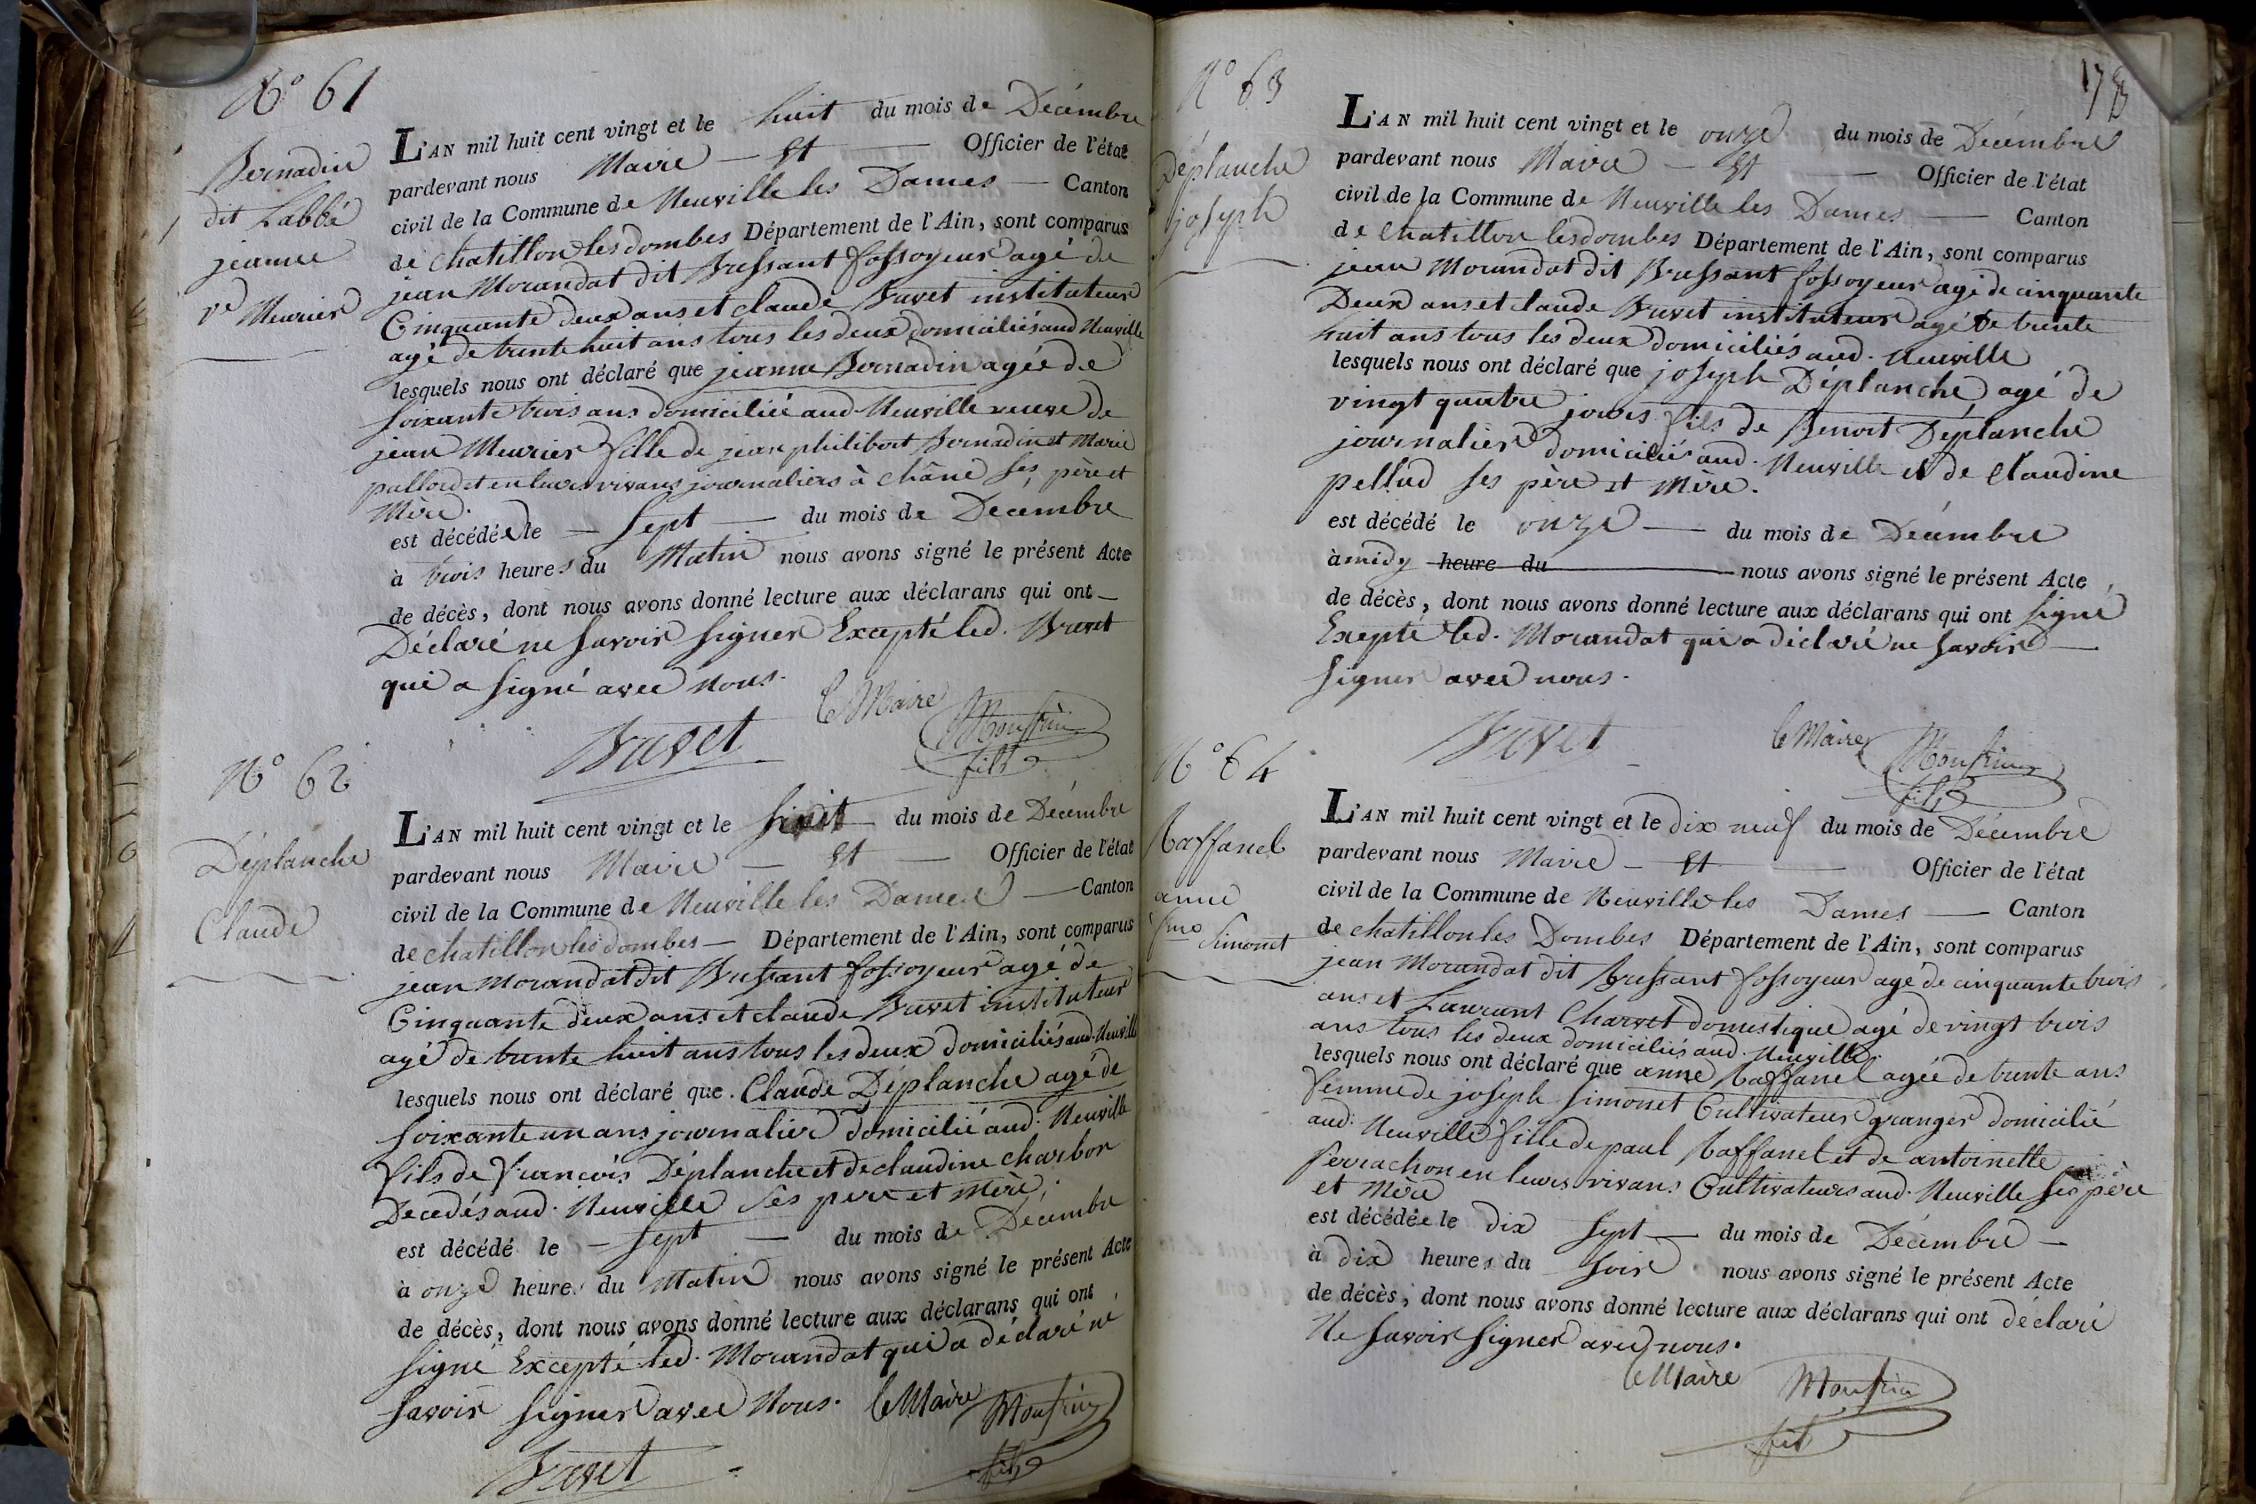 N° 61
Bernadin
dit Labbé
jeanne
ve Meurier
L'AN mil huit cent vingt et le huit du mois de Décembre
pardevant nous Maire — Et — Officier de l'état
civil de la Commune de Neuville les Dames — Canton
de chatillon les dombes Département de l'Ain, sont comparus
jean Morandat dit Bressant fossoyeur agé de
Cinquante deux ans et claude Buvet instituteur
agé de trente huit ans tous les deux domiciliés aud Neuville
lesquels nous ont déclaré que jeanne Bernadin agée de
soixante trois ans domiciliée aud Neuville veuve de
jean Meurier fille de jean philibert Bernadin et Marie
palloidet en leurs vivans journaliers à châne ses père et
Mère.
est décédée le — sept — du mois de Décembre
à trois heures du Matin nous avons signé le présent Acte
de décès, dont nous avons donné lecture aux déclarans qui ont —
Déclaré ne savoir signer Excepté led. Buvet
qui a signé avec Nous.
le Maire
Buvet
Monfrin
fils
N° 62
Déplanche
Claude
L'AN mil huit cent vingt et le huit du mois de Décembre
pardevant nous Maire — Et — Officier de l'état
civil de la Commune de Neuville les Dames — Canton
de chatillon les dombes — Département de l'Ain, sont comparus
jean Morandat dit Bressant fossoyeur agé de
Cinquante deux ans et claude Buvet instituteur
agé de trente huit ans tous les deux domiciliés aud. Neuville
lesquels nous ont déclaré que. Claude Déplanche agé de
soixante un ans journalier domicilié aud. Neuville
fils de François Déplanche et de claudine charbon
Decedés aud. Neuville ses pere et mère;
est décédé le — sept — du mois de Decembre
à onze heures du Matin nous avons signé le présent Acte
de décès, dont nous avons donné lecture aux déclarans qui ont
signé Excepté led. Morandat qui a déclaré ne
savoir signer avec Nous. le Maire Monfrin
Buvet
fils
178
N° 63
Déplanche
joseph
L'AN mil huit cent vingt et le onze du mois de Décembre
pardevant nous Maire — Et — Officier de l'état
civil de la Commune de Neuville les Dames — Canton
de chatillon les dombes Département de l'Ain, sont comparus
jean Morandat dit Bressant fossoyeur agé de cinquante
Deux ans et claude Buvet instituteur agé de trente
huit ans tous les deux domiciliés aud. Neuville
lesquels nous ont déclaré que joseph Déplanche agé de
vingt quatre jours fils de Benoit Déplanche
journalier domicilié aud. Neuville et de claudine
pellud ses père et Mère.
est décédé le onze — du mois de Décembre
à midy heure du — nous avons signé le présent Acte
de décès, dont nous avons donné lecture aux déclarans qui ont signé
Exepté led. Morandat qui a déclaré ne savoir —
signer avec nous.
Buvet
le Maire
Monfrin
fils
N° 64
Raffanel
anne
fme Simonet
L'AN mil huit cent vingt et le dix neuf du mois de Décembre
pardevant nous Maire — Et — Officier de l'état
civil de la Commune de Neuville les Dames — Canton
de chatillon les Dombes Département de l'Ain, sont comparus
jean Morandat dit Bressant fossoyeur agé de cinquante trois
ans et Laurant Charvet domestique agé de vingt trois
ans tous les deux domiciliés aud. Neuville.
lesquels nous ont déclaré que anne Raffanel agée de trente ans
femme de joseph simonet Cultivateur granger domicilié
aud. Neuville fille de paul Raffanel et de antoinette
serrachon en leurs vivans Cultivateurs aud. Neuville ses père
et Mère
est décédée le dix sept — du mois de Décembre —
à dix heures du soir. nous avons signé le présent Acte
de décès, dont nous avons donné lecture aux déclarans qui ont déclaré
Ne savoir signer avec nous.
le Maire Monfrin
fils